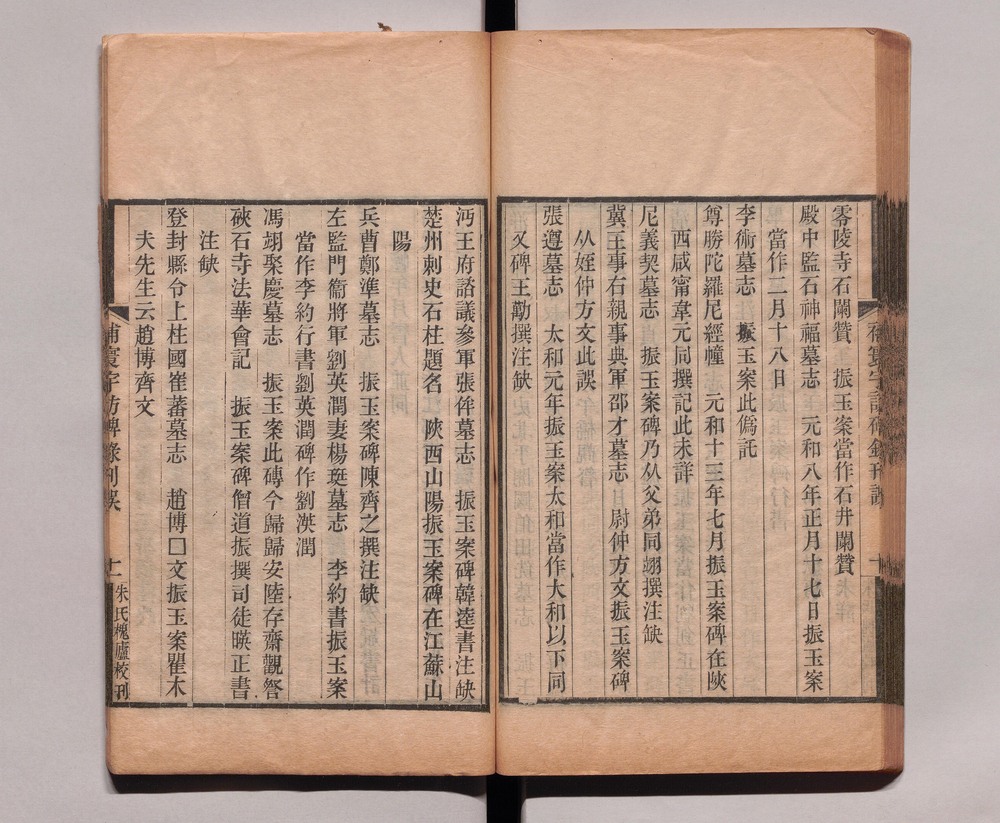 零陵寺石闌贊　振玉案當作石井闌贊
殿中監石神福墓志　元和八年正月十七日振玉案
當作二月十八日
李術墓志　振玉案此僞託
尊勝陀羅尼經幢　元和十三年七月振玉案碑在陝
西咸甯韋元同撰記此未詳
尼義契墓志　振玉案碑乃从父弟同翊撰注缺
冀王事右親事典軍邵才墓志　尉仲方文振玉案碑
从姪仲方文此誤
張遵墓志　太和元年振玉案太和當作大和以下同
又碑王勱撰注缺
沔王府諮議參軍張侔墓志　振玉案碑韓逵書注缺
楚州刺史石柱題名　陝西山陽振玉案碑在江蘇山
陽
兵曹鄭準墓志　振玉案碑陳齊之撰注缺
左監門衞將軍劉英潤妻楊珽墓志　李約書振玉案
當作李約行書劉英潤碑作劉渶潤
馮翊聚慶墓志　振玉案此磚今歸歸安陸存齋觀詧
硤石寺法華會記　振玉案碑僧道振撰司徒暎正書
注缺
登封縣令上柱國崔蕃墓志　趙博□文振玉案瞿木
夫先生云趙博齊文
補寰宇訪碑錄刊誤
十一
朱氏槐廬校刊